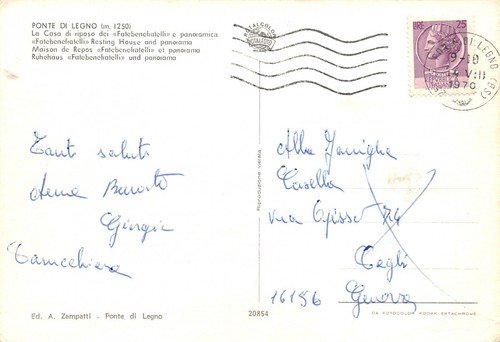 PONTE DI LEGNO (m. 1250)
La Casa di riposo dei «Fatebenefratelli» e panoramica
«Fatebenefratelli» Resting House and panorama
Maison de Repos «Fatebenefratelli» et panorama
Ruhehaus «Fatebenefratelli» und panorama
ROTALCOLOR
LIRE 25
PONTE DI LEGNO (BS)
9-10
1970
Tanti saluti
Giorgio
Ed. A. Zampatti - Ponte di Legno
Riproduzione vietata
20854
Alla Famiglia
Casella
via
Cegli
16156 Genova
DA FOTOCOLOR KODAK EKTACHROME